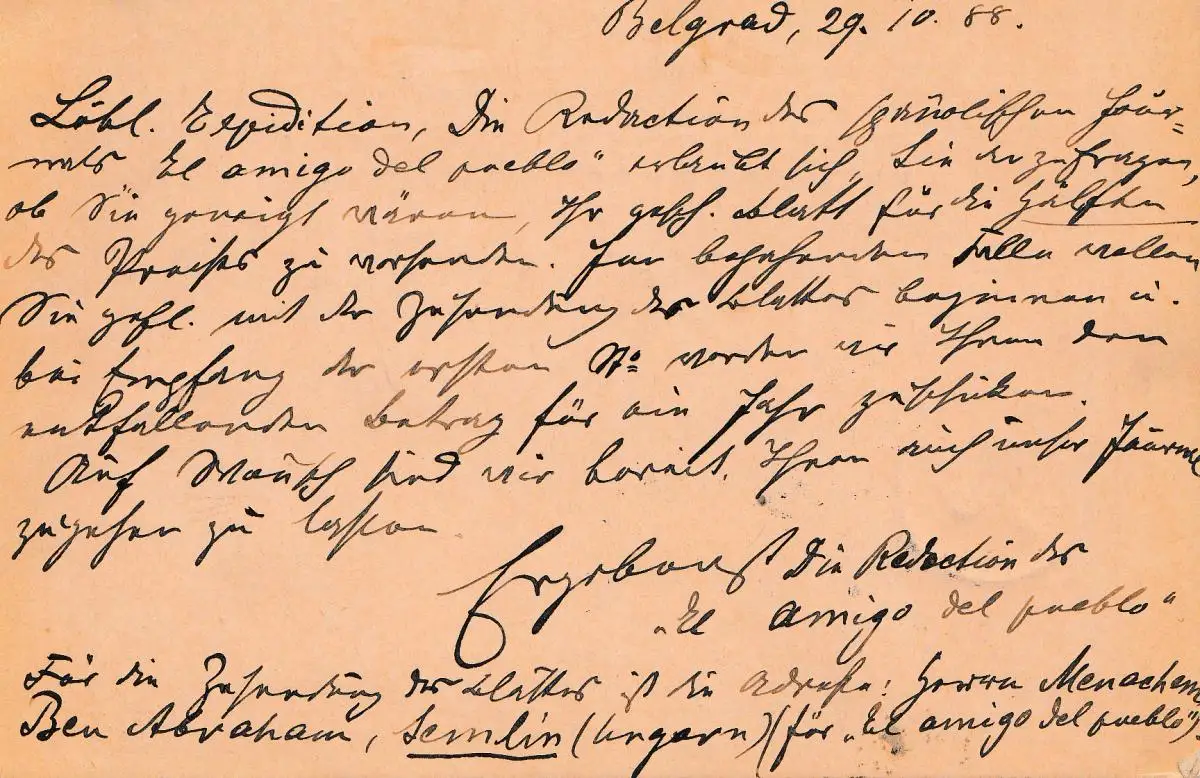 Belgrad, 29. 10. 88.
Löbl. Expedition, Die Redaction des spaniolischen Jour-
nals "El amigo del pueblo" erlaubt sich, Sie anzufragen,
ob Sie geneigt wären, Ihr gesch. Blatt für die Hälfte
des Preises zu versenden. Im bejahenden Falle wollen
Sie gefl. mit der Zusendung des Blattes beginnen u.
bei Empfang der ersten No werden wir Ihnen den
entfallenden Betrag für ein Jahr zuschicken.
Auf Wunsch sind wir bereit, Ihnen auch unser Journal
zugehen zu lassen.
Ergebenst Die Redaction des
„El amigo del pueblo"
Für die Zusendung des Blattes ist die Adresse: Herrn Menachem
Ben Abraham, Semlin (Ungarn) (für „El amigo del pueblo").